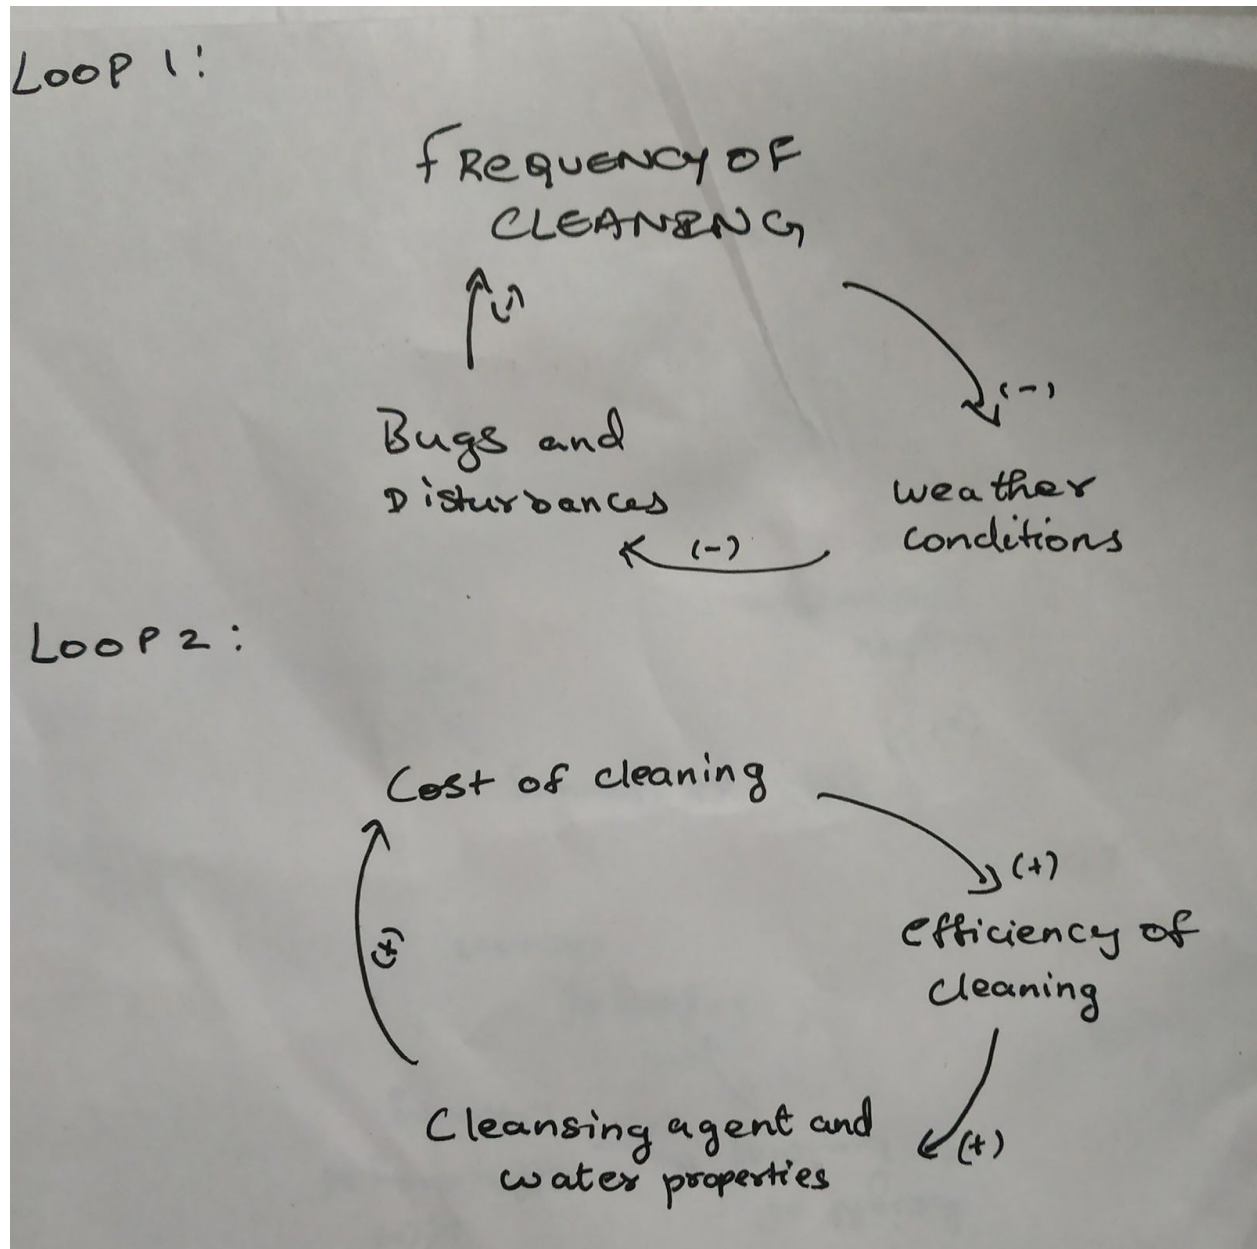 LOOP 1:
fREQUENCY OF
CLEANING
(-)
(-)
Bugs and
Disturbances
weather
conditions
(-)
LOOP 2:
Cost of cleaning
(+)
efficiency of
cleaning
(+)
Cleansing agent and
water properties
(+)